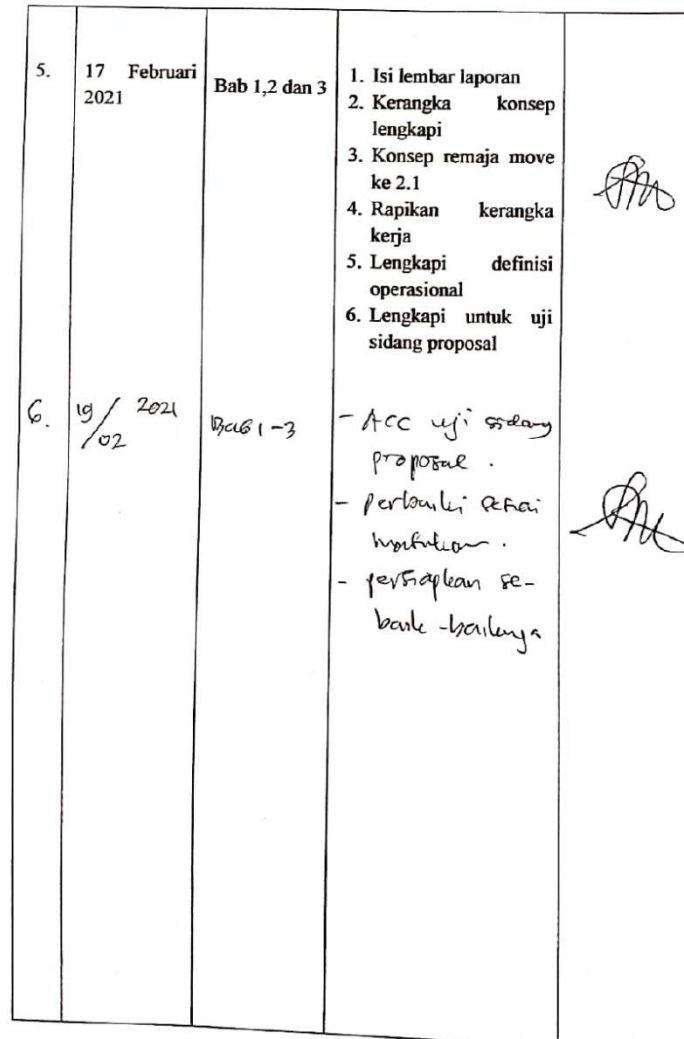 5.
17 Februari
2021
Bab 1,2 dan 3
1. Isi lembar laporan
2. Kerangka konsep
lengkapi
3. Konsep remaja move
ke 2.1
4. Rapikan kerangka
kerja
5. Lengkapi definisi
operasional
6. Lengkapi untuk uji
sidang proposal
6.
19/02 2021
Bab 1-3
- Acc uji sidang
proposal.
- perbaiki sesuai
- persiapkan se-
baik-baiknya